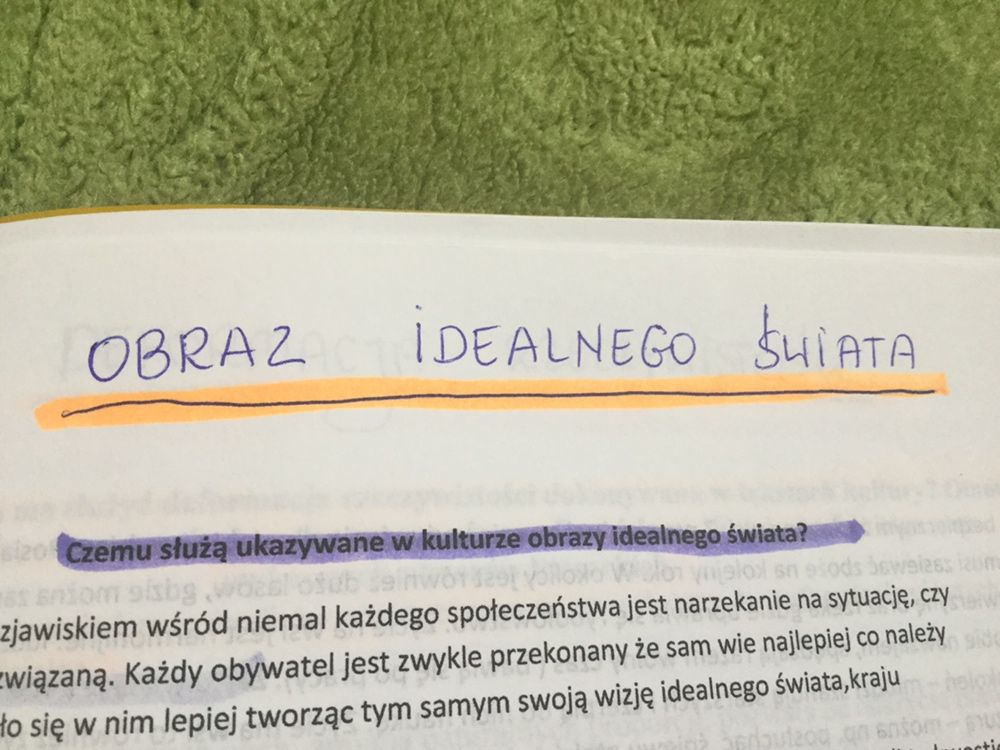 OBRAZ IDEALNEGO ŚWIATA
Czemu służą ukazywane w kulturze obrazy idealnego świata?
zjawiskiem wśród niemal każdego społeczeństwa jest narzekanie na sytuację, czy
związaną. Każdy obywatel jest zwykle przekonany że sam wie najlepiej co należy
ło się w nim lepiej tworząc tym samym swoją wizję idealnego świata,kraju